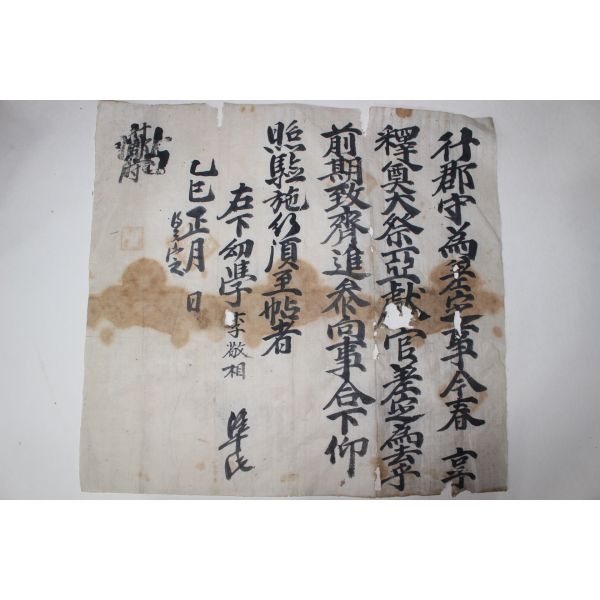 行郡守爲差定事今春 享
釋奠大祭亞獻官差定爲去乎
前期致齊進參向事合下仰
照驗施行須至帖者
右下幼學李敬相 準此
乙巳正月 日
差定
行郡守